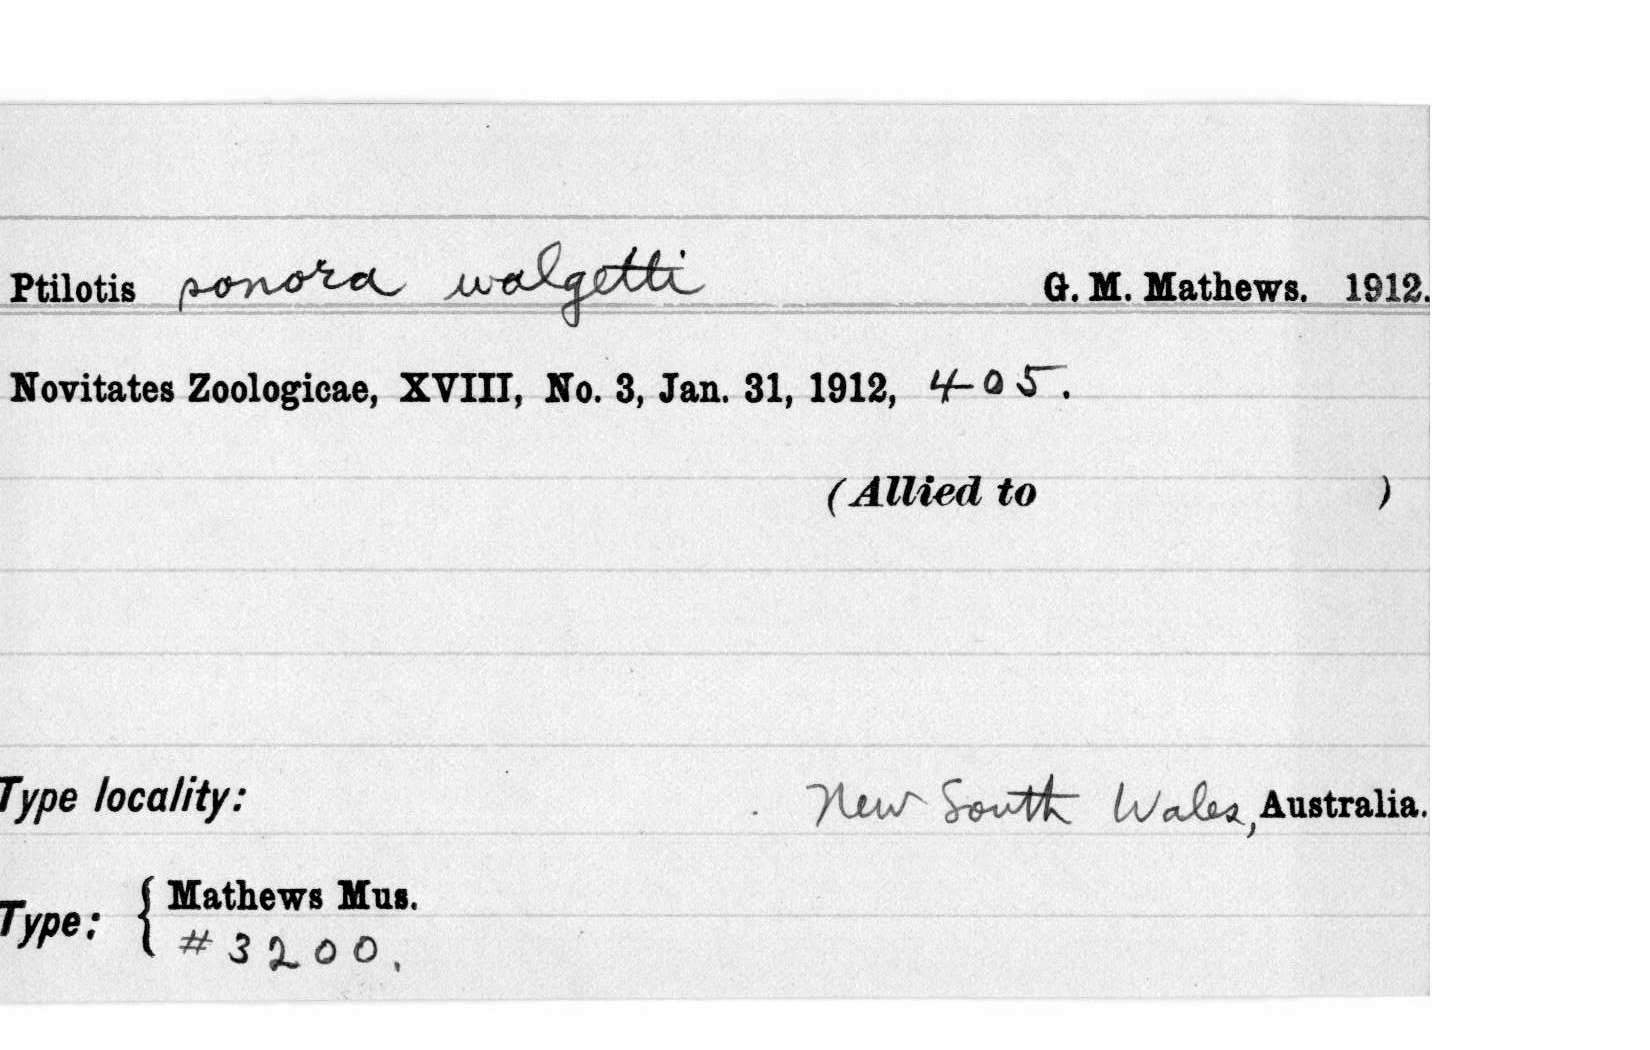 Ptilotis sonora walgetti G. M. Mathews. 1912.
Novitates Zoologicae, XVIII, No. 3, Jan. 31, 1912, 405.
(Allied to )
Type locality: New South Wales, Australia.
Type: { Mathews Mus.
#3200.